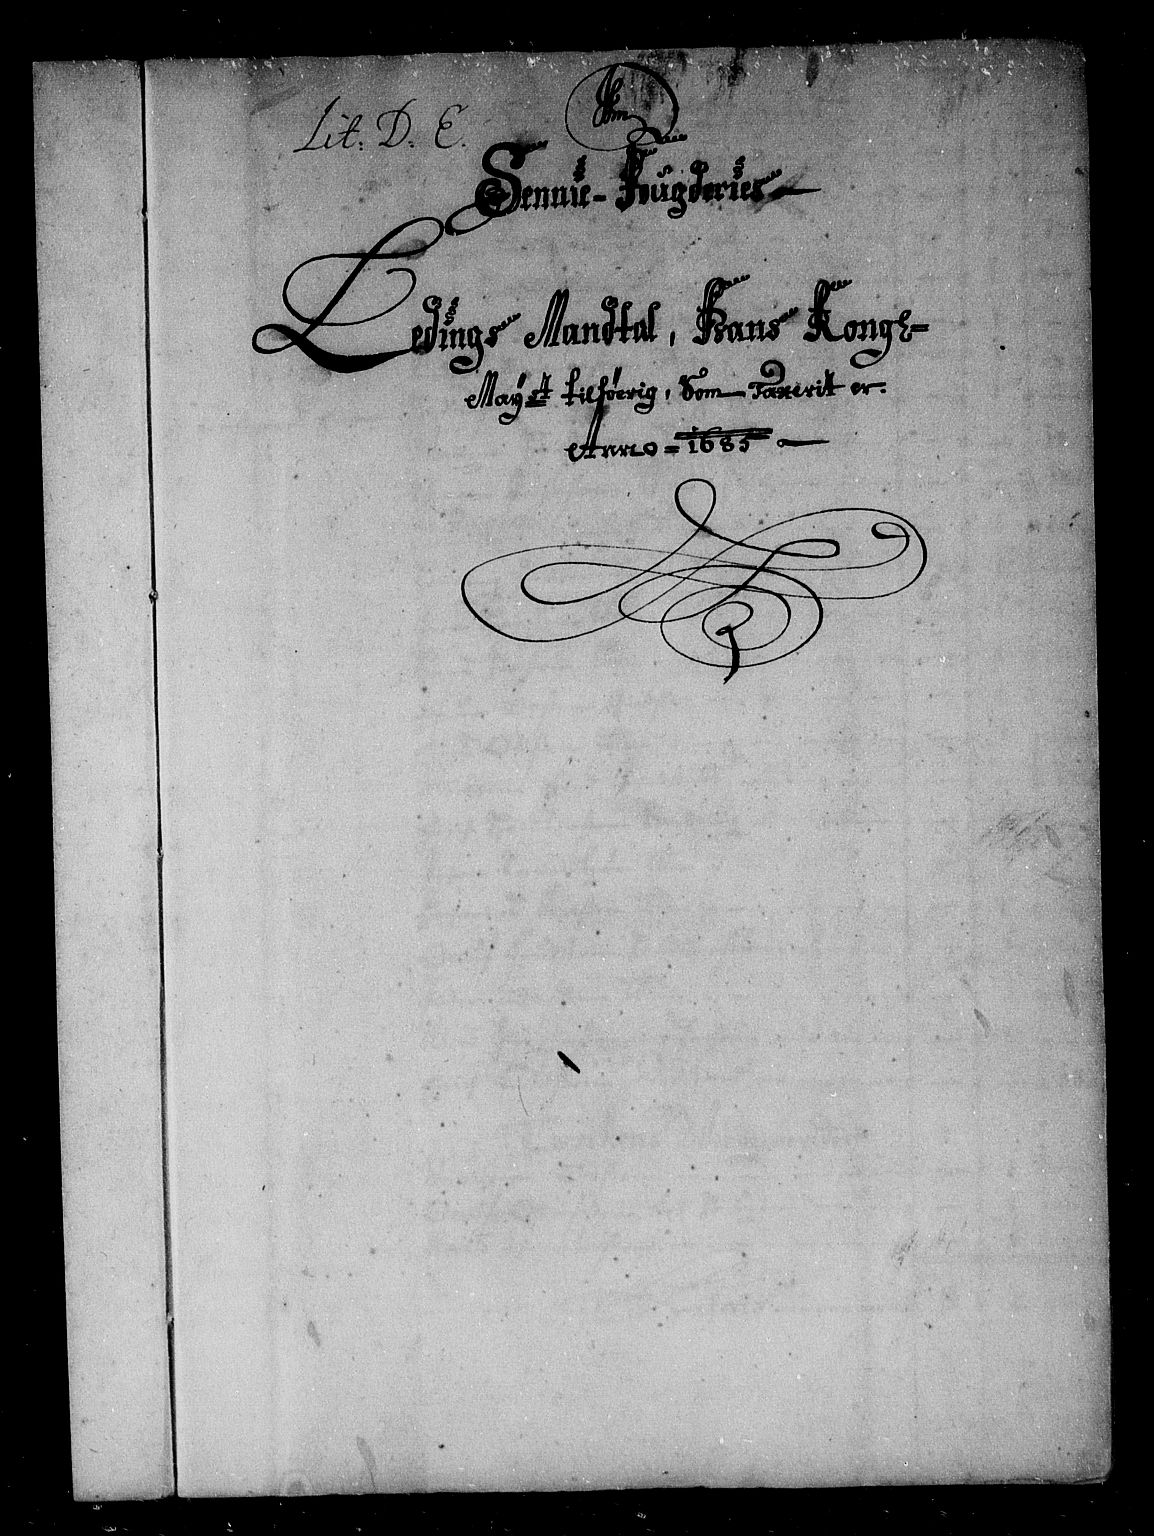 Lit. D. E.
Sennie-Fugderies
Ledings Mandtal, Hans Kongl-
Maÿst tilhøerig, Som Taxerit er.
Anno = 1685